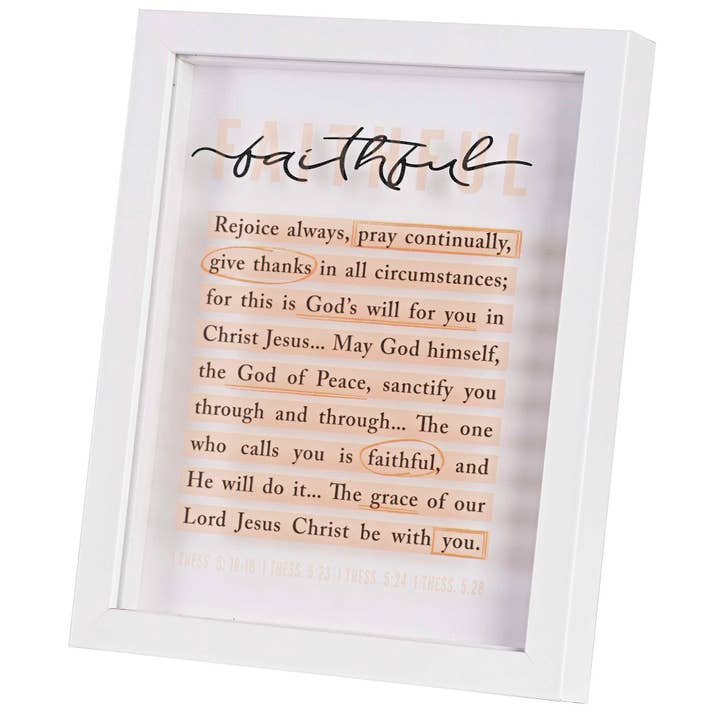 FAITHFUL
faithful
Rejoice always, pray continually,
give thanks in all circumstances;
for this is God's will for you in
Christ Jesus... May God himself,
the God of Peace, sanctify you
through and through... The one
who calls you is faithful, and
He will do it... The grace of our
Lord Jesus Christ be with you.
I THESS. 5:16-18 I THESS. 5:23 I THESS. 5:24 I THESS. 5:28